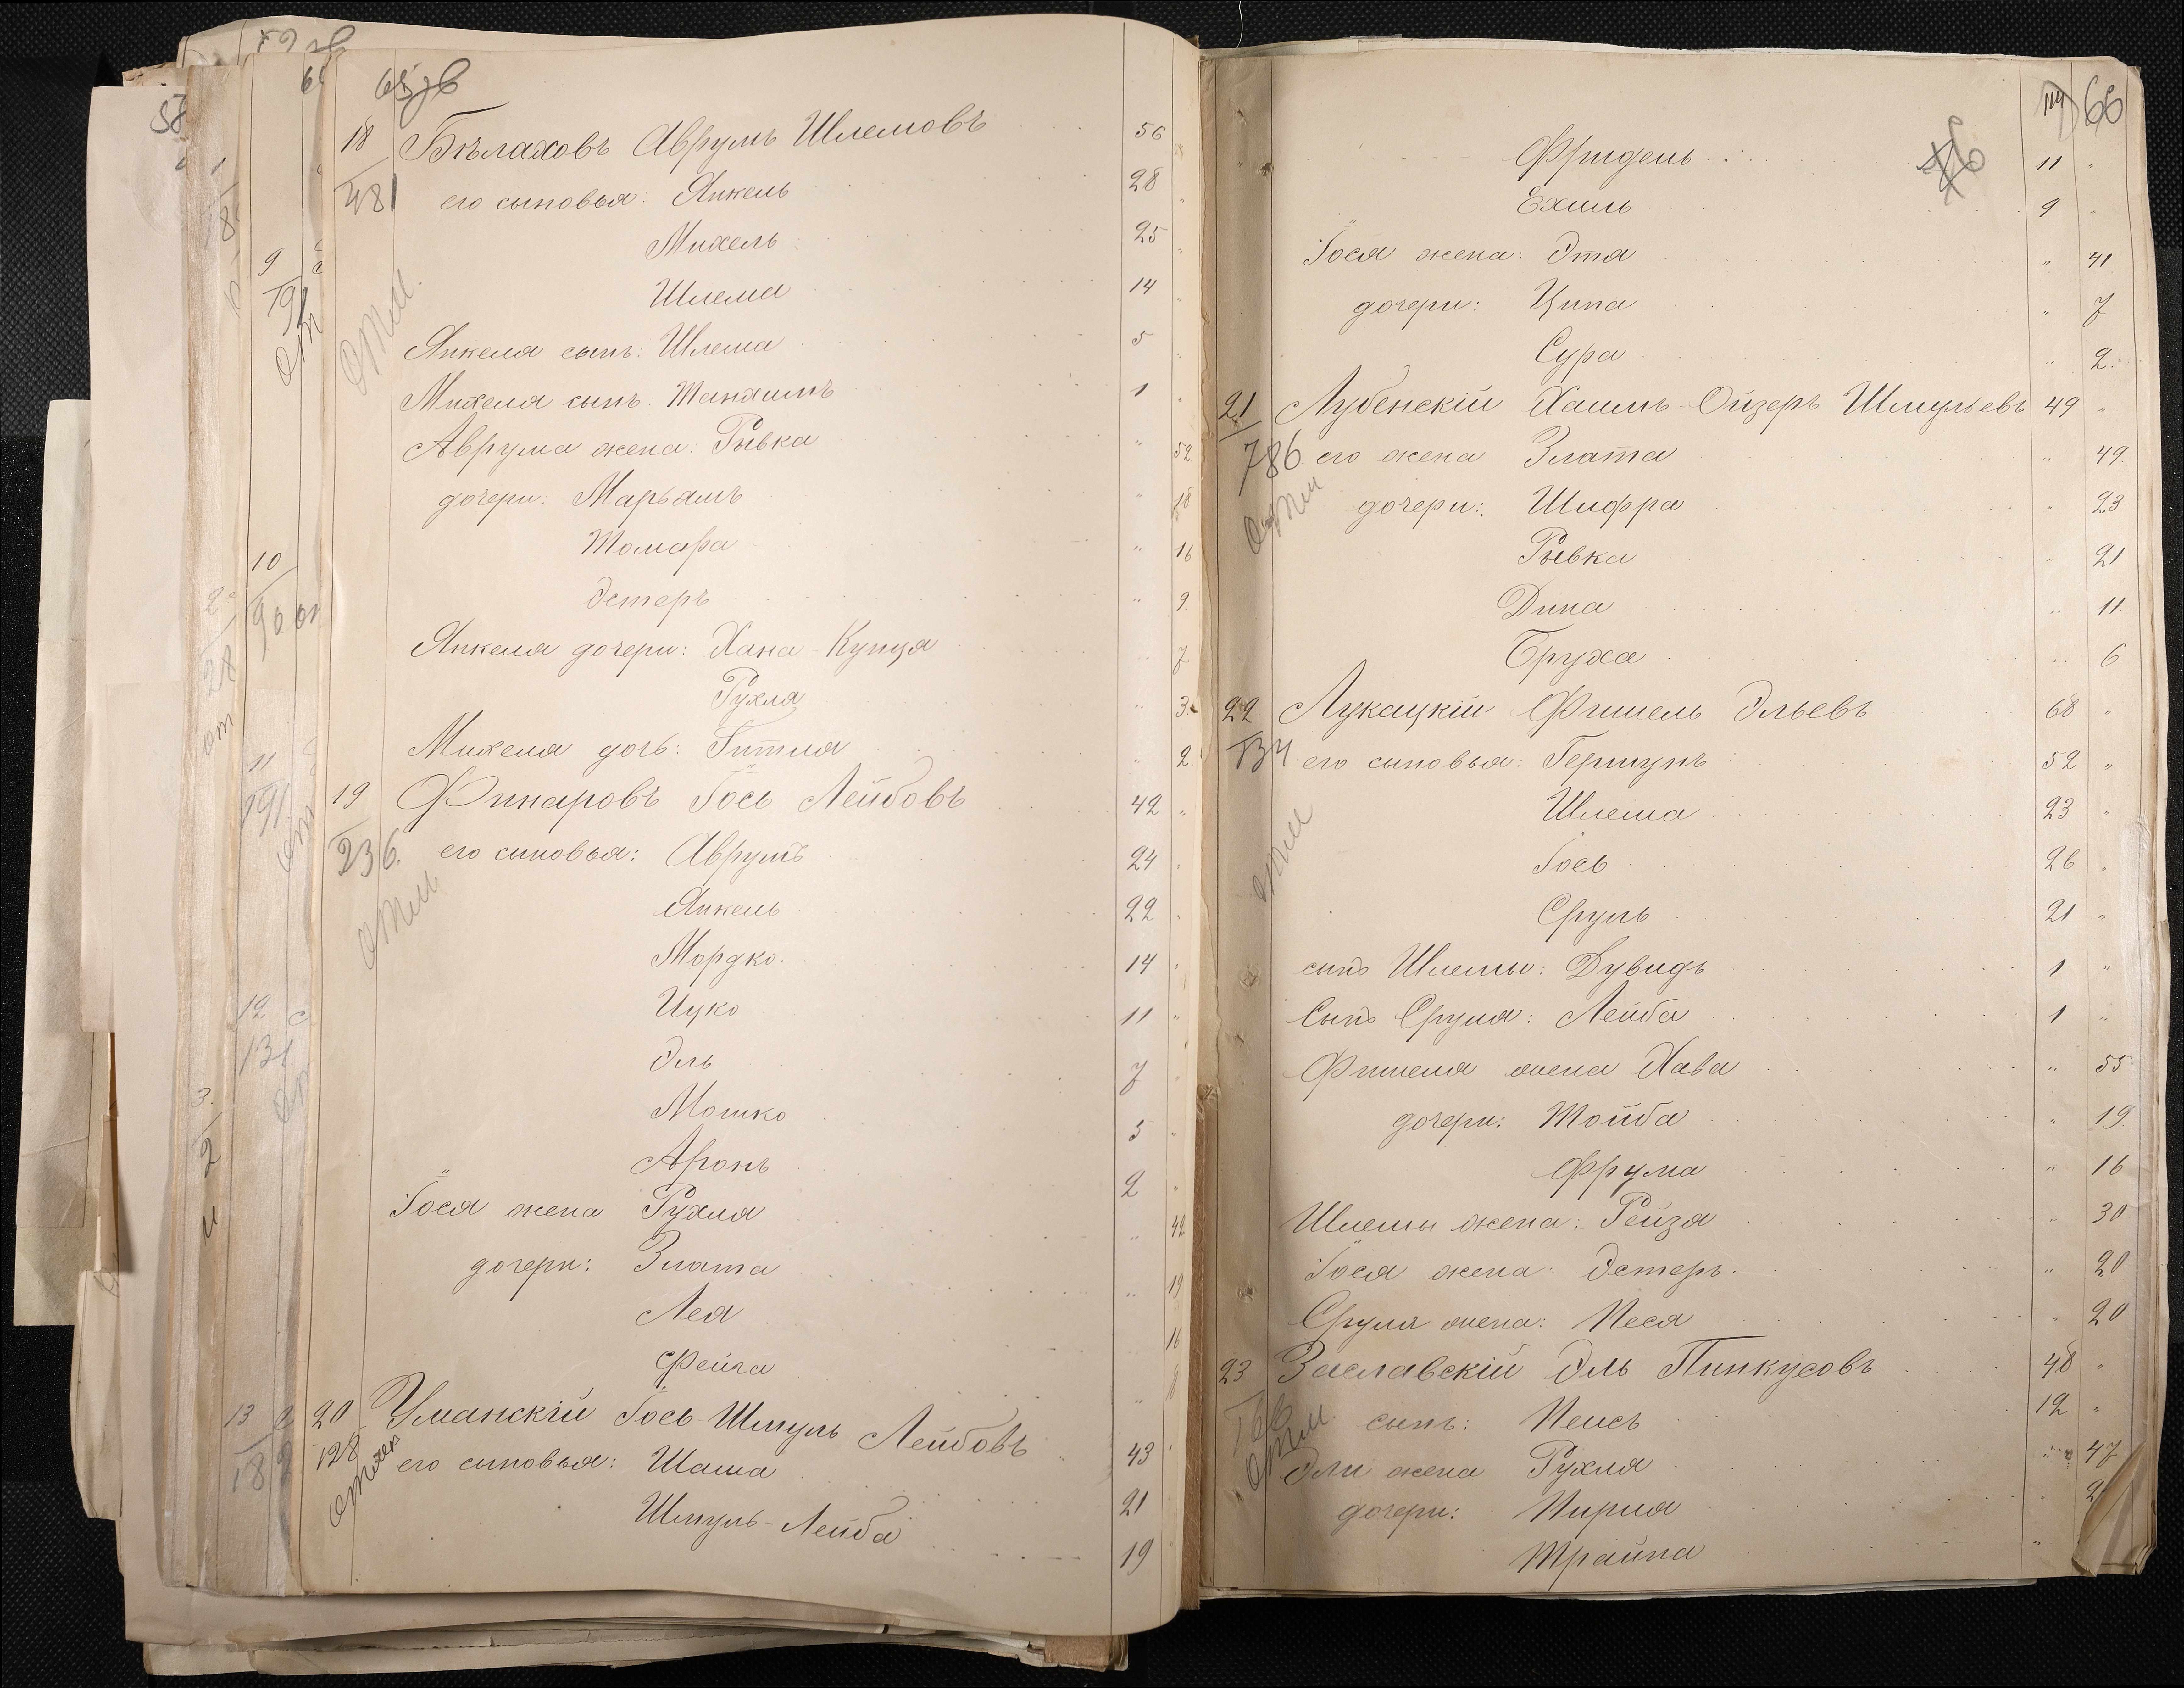 65 об
18 Бѣлаховъ Аврумъ Шлемовъ 56
481 его сыновья: Янкель 28
Михель 25
Шлема 14
Янкеля сынъ: Шлема 5
Михеля сынъ: Танхимъ 1
Аврума жена: Рывка " 52
дочери: Марьямъ " 18
Томара " 16
Эстеръ " 9
Янкеля дочери: Хана-Купця " 7
Рухля " 3
Михеля дочь: Гитля " 2
19 Финаровъ Іось Лейбовъ 42 "
236 его сыновья: Аврумъ 24
Янкель 22
Мордко 14
Ицко 11 "
Эль 7
Мошко 5 "
Аронъ 2 "
Іося жена Рухля " 42
дочери: Злата " 19
Лея 16
Фейга
20 Уманскій Іось-Шмуль Лейбовъ 43
128 его сыновья: Шама 21
Шмуль-Лейба 19
66
Фридель 11 "
Ехиль 9
Іося жена: Эта " 41
дочери: Ципа " 7
Сура " 2
21 Лубенскій Хаимъ-Ойзеръ Шмульевъ 49 "
786 его жена Злата " 49
дочери: Шифра " 23
Рывка " 21
Дина " 11
Бруха " 6
22 Лукацкій Фишель Эльевъ 68 "
134 его сыновья: Гершунъ 52 "
Шлема 23 "
Іось 26 "
Сруль 21 "
сынъ Шлемы: Дувидъ 1 "
Сынъ Сруля: Лейба 1 "
Фишеля жена Хава " 55
дочери: Тойба " 19
Фрума " 16
Шлемы жена: Рейзя " 30
Іося жена: Эстеръ " 20
Сруля жена: Песя " 20
23 Заславскій Эль Пинкусовъ 48 "
166 сынъ: Пейсъ 12 "
Эли жена Рухля " 47
дочери: Пирля
Трайна "